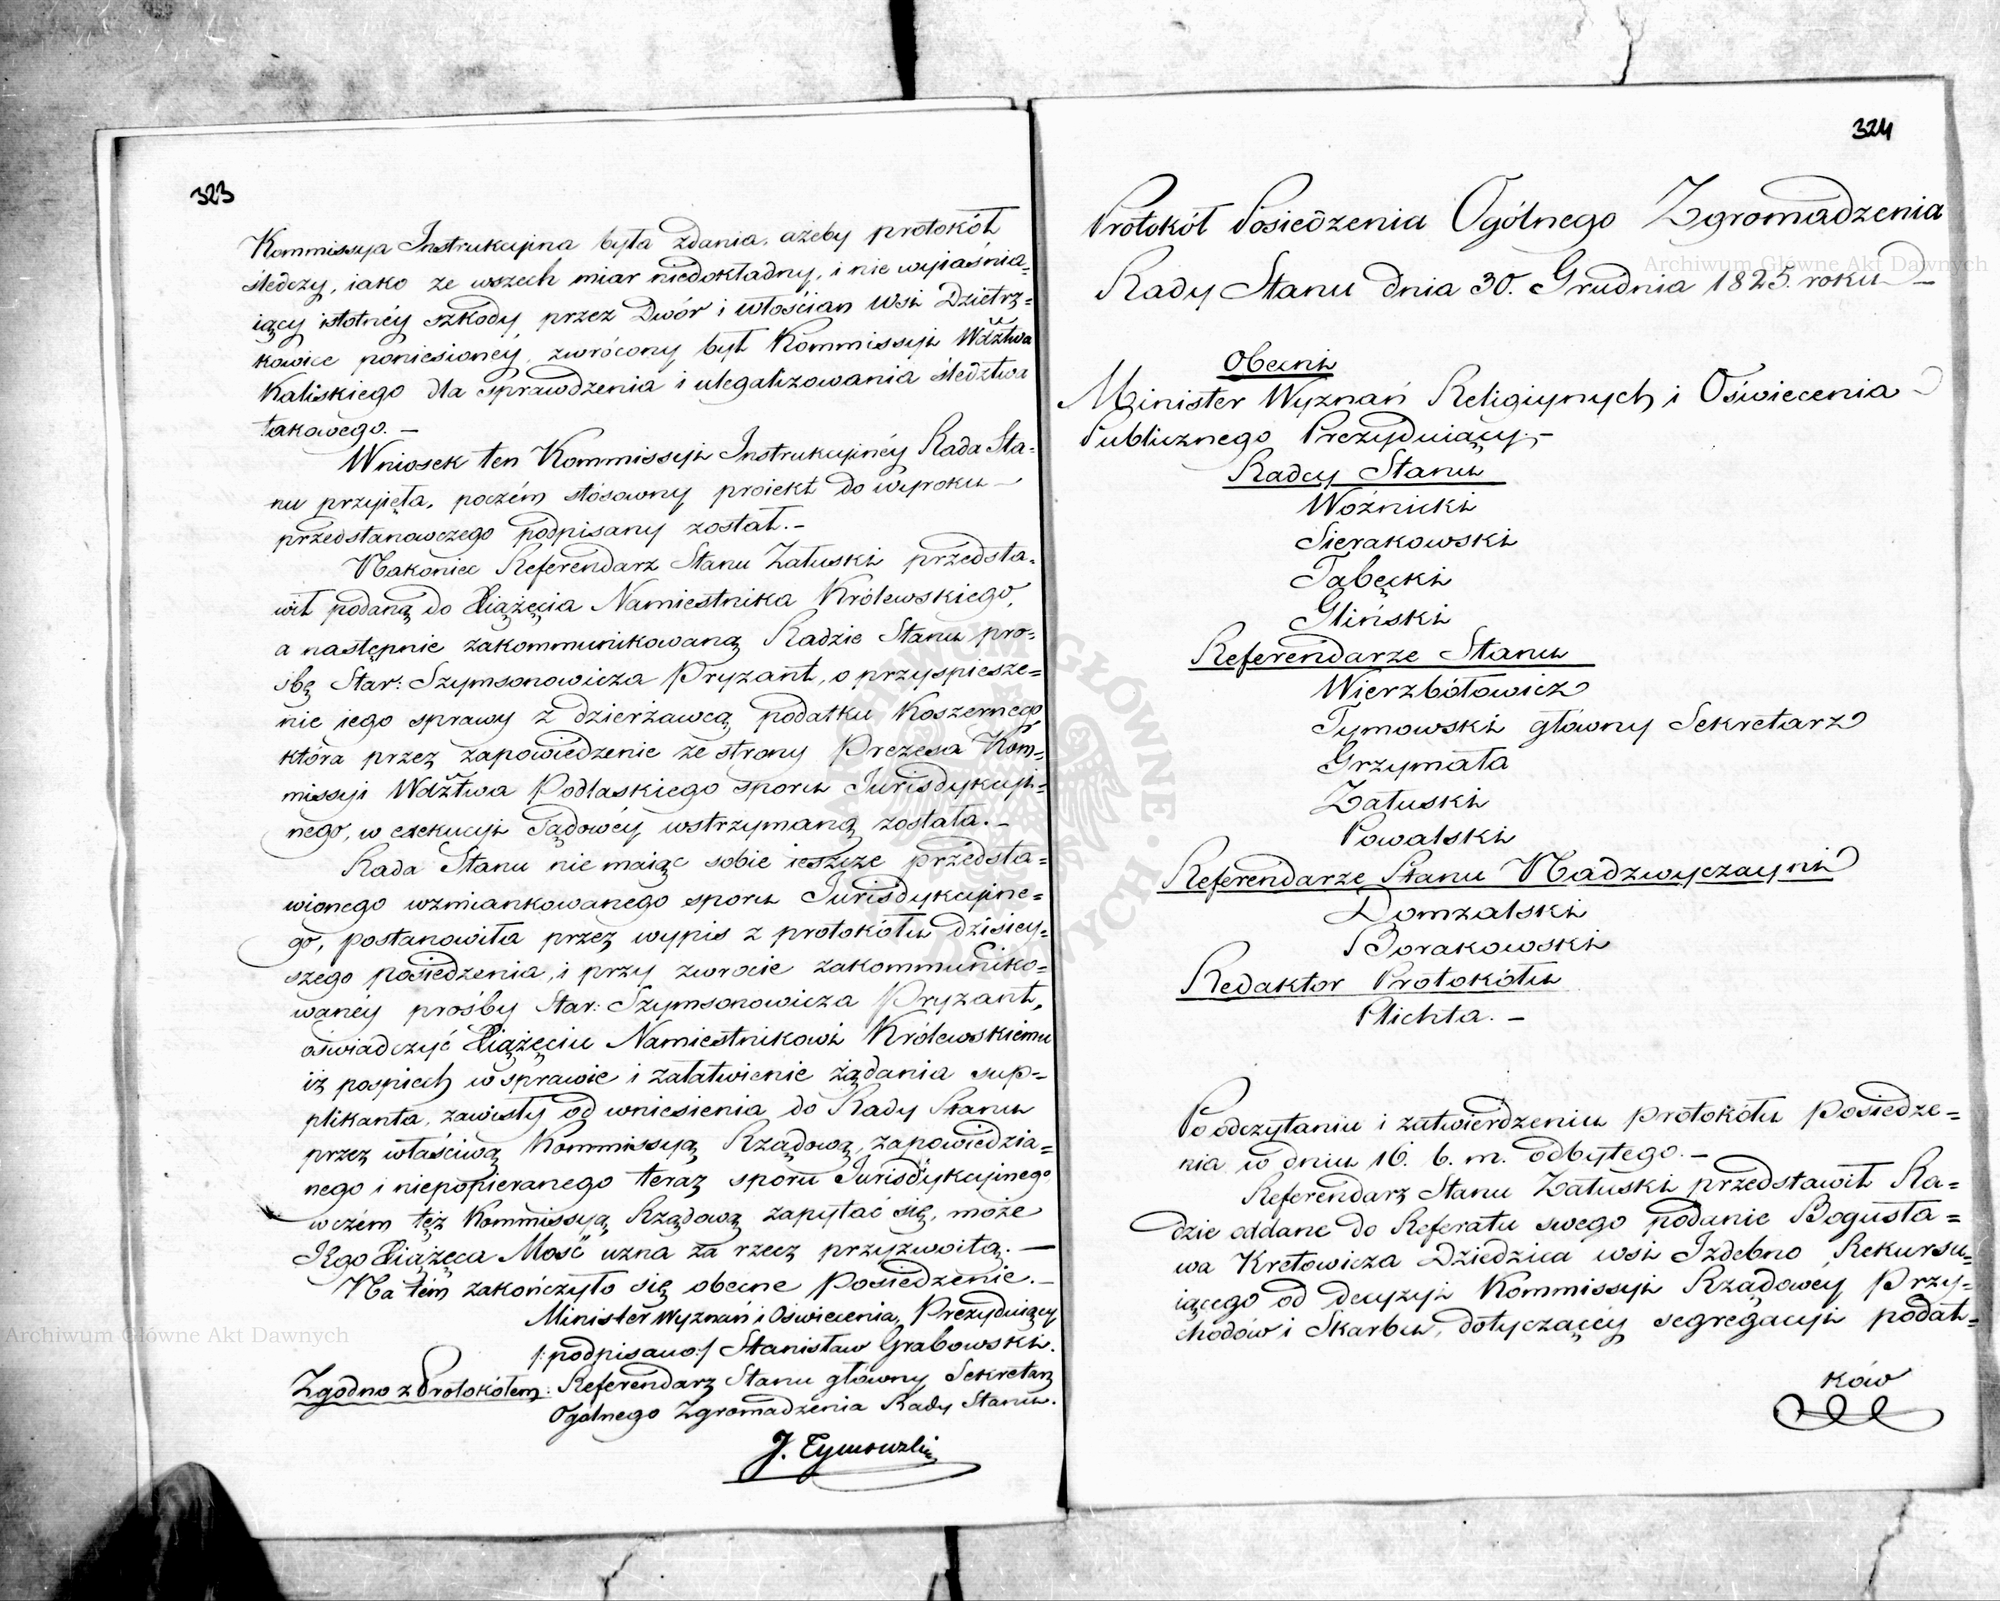 323
Kommissya Instrukcyina była zdania, ażeby protokół
śledczy, iako ze wszech miar niedokładny, i nie wyiaśnia=
iący istotnéy szkody przez Dwór i włościan Wsi Dzietrz=
kowice poniesionéy, zwrócony był Kommissyi Wdztwa
Kaliskiego dla sprawdzenia i ulegalizowania śledztwa
takowego. —
Wniosek ten Kommissyi Instrukcyinéy Rada Sta=
nu przyięta, poczém stósowny proiekt do wyroku —
przedstanowczego podpisany został. —
Nakoniec Referendarz Stanu Załuski przedsta=
wił podaną do Xiążęcia Namiestnika Królewskiego,
a następnie zakommunikowaną Radzie Stanu pro=
śbę Star: Szymsonowicza Pryzant, o przyspiesze=
nie iego sprawy z dzierżawcą podatku Koszernego
która przez zapowiedzenie ze strony Prezesa Kom=
missyi Wdztwa Podlaskiego sporu Jurisdykcyi=
nego, w exekucyi Sądowéy wstrzymaną została. —
Rada Stanu nie maiąc sobie ieszcze przedsta=
wionego wzmiankowanego sporu Jurisdykcyine=
go, postanowiła przez wypis z protokółu dzisiey=
szego posiedzenia, i przy zwrocie zakommuniko=
wanéy prośby Star: Szymsonowicza Pryzant,
oświadczyć Xiążęciu Namiestnikowi Królewskiemu
iż pospiech w sprawie i załatwienie żądania sup=
plikanta, zawisły od wniesienia do Rady Stanu
przez właściwą Kommissyą Rządową, zapowiedzia=
nego i niepopieranego teraz sporu Jurisdykcyinego
w czém téż Kommissyą Rządową zapytać się, może
JEgo Xiążęca Mość uzna za rzecz przyzwoitą. —
Na tém zakończyło się obecne Posiedzenie. —
Minister Wyznań i Oświecenia, Prezyduiący
/:podpisano:/ Stanisław Grabowski.
Zgodno z Protokółem: Referendarz Stanu główny Sekretarz
Ogólnego Zgromadzenia Rady Stanu.
J. Tymowski
324
Protokół Posiedzenia Ogólnego Zgromadzenia
Rady Stanu dnia 30. Grudnia 1825. roku —
Obecni
Minister Wyznań Religiynych i Oświecenia
Publicznego Prezyduiący, —
Radcy Stanu
Woźnicki
Sierakowski
Tabęcki
Gliński
Referendarze Stanu
Wierzbołowicz
Tymowski główny Sekretarz
Grzymała
Załuski
Powalski
Referendarze Stanu Nadzwyczayni
Domzalski
Borakowski
Redaktor Protokółu
Plichta. —
Po odczytaniu i zatwierdzeniu protokółu posiedze=
nia w dniu 16. b. m. odbytego. —
Referendarz Stanu Załuski przedstawił Ra=
dzie oddane do Referatu swego podanie Bogusła=
wa Kretowicza Dziedzica wsi Izdebno Rekursu=
iącego od decyzyi Kommissyi Rządowéy Przy=
chodów i Skarbu, dotyczącéy segregacyi podat=
ków
Archiwum Główne Akt Dawnych
Archiwum Główne Akt Dawnych
ARCHIWUM GŁÓWNE AKT DAWNYCH